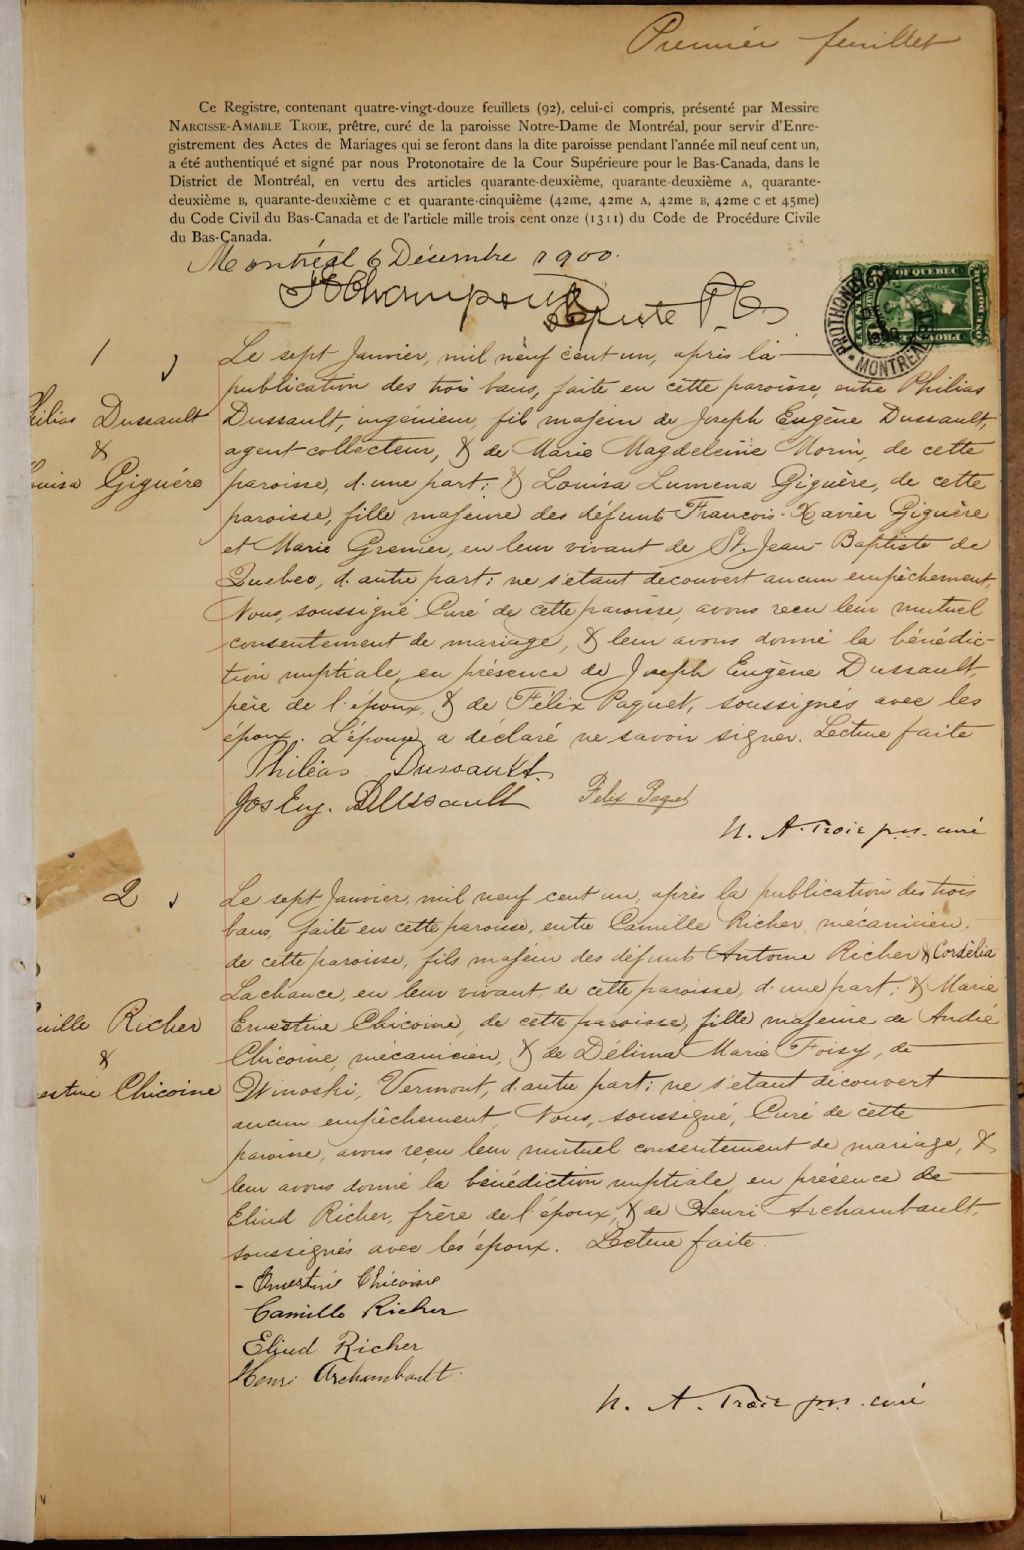 Premier feuillet
Ce Registre, contenant quatre-vingt-douze feuillets (92), celui-ci compris, présenté par Messire
NARCISSE-AMABLE TROIE, prêtre, curé de la paroisse Notre-Dame de Montréal, pour servir d'Enre-
gistrement des Actes de Mariages qui se feront dans la dite paroisse pendant l'année mil neuf cent un,
a été authentiqué et signé par nous Protonotaire de la Cour Supérieure pour le Bas-Canada, dans le
District de Montréal, en vertu des articles quarante-deuxième, quarante-deuxième A, quarante-
deuxième B, quarante-deuxième C et quarante-cinquième (42me, 42me A, 42me B, 42me C et 45me)
du Code Civil du Bas-Canada et de l'article mille trois cent onze (1311) du Code de Procédure Civile
du Bas-Canada.
Montréal 6 Décembre 1900.
Députe P.C.S.
OF QUEBEC
PROTHONO
MONTREAL
1
hilias Dussault
&
ouisa Giguére
Le sept Janvier, mil neuf cent un, après la
publication des trois bans, faite en cette paroisse, entre Philias
Dussault, ingénieur, fils majeur de Joseph Eugène Dussault,
agent-collecteur, & de Marie Magdeleine Morin, de cette
paroisse, d'une part; & Louisa Lumena Giguère, de cette
paroisse, fille majeure des défunts François-Xavier Giguère
et Marie Grenier, en leur vivant de St. Jean-Baptiste de
Quebec, d'autre part; ne s'etant découvert aucun empêchement,
Nous, soussigné Curé de cette paroisse, avons reçu leur mutuel
consentement de mariage, & leur avons donné la bénédic-
tion nuptiale, en présence de Joseph Eugène Dussault,
père de l'époux, & de Félix Paquet, soussignés avec les
époux. L'épouse a déclaré ne savoir signer. Lecture faite
Philéas Dussault.
Jos Eug. Dussault
Felix Paquet
N. A. Troie p.s.s. curé
2
mille Richer
&
estine Chicoine
Le sept Janvier, mil neuf cent un, après la publication des trois
bans, faite en cette paroisse, entre Camille Richer, mécanicien,
de cette paroisse, fils majeur des défunts Antoine Richer & Cordélia
Lachance, en leur vivant, de cette paroisse, d'une part; & Marie
Ernestine Chicoine, de cette paroisse, fille majeure de André
Chicoine, mécanicien, & de Délima Marie Foisy, de
Winoski, Vermont, d'autre part; ne s'etant découvert
aucun empêchement, Nous, soussigné, Curé de cette
paroisse, avons reçu leur mutuel consentement de mariage, &
leur avons donné la bénédiction nuptiale, en présence de
Eliud Richer, frère de l'époux, & de Henri Archambault,
soussignés avec les époux. Lecture faite.
- Ernestine Chicoine
Camille Richer
Eliud Richer
Henri Archambault.
N. A. Troie p.s.s. curé